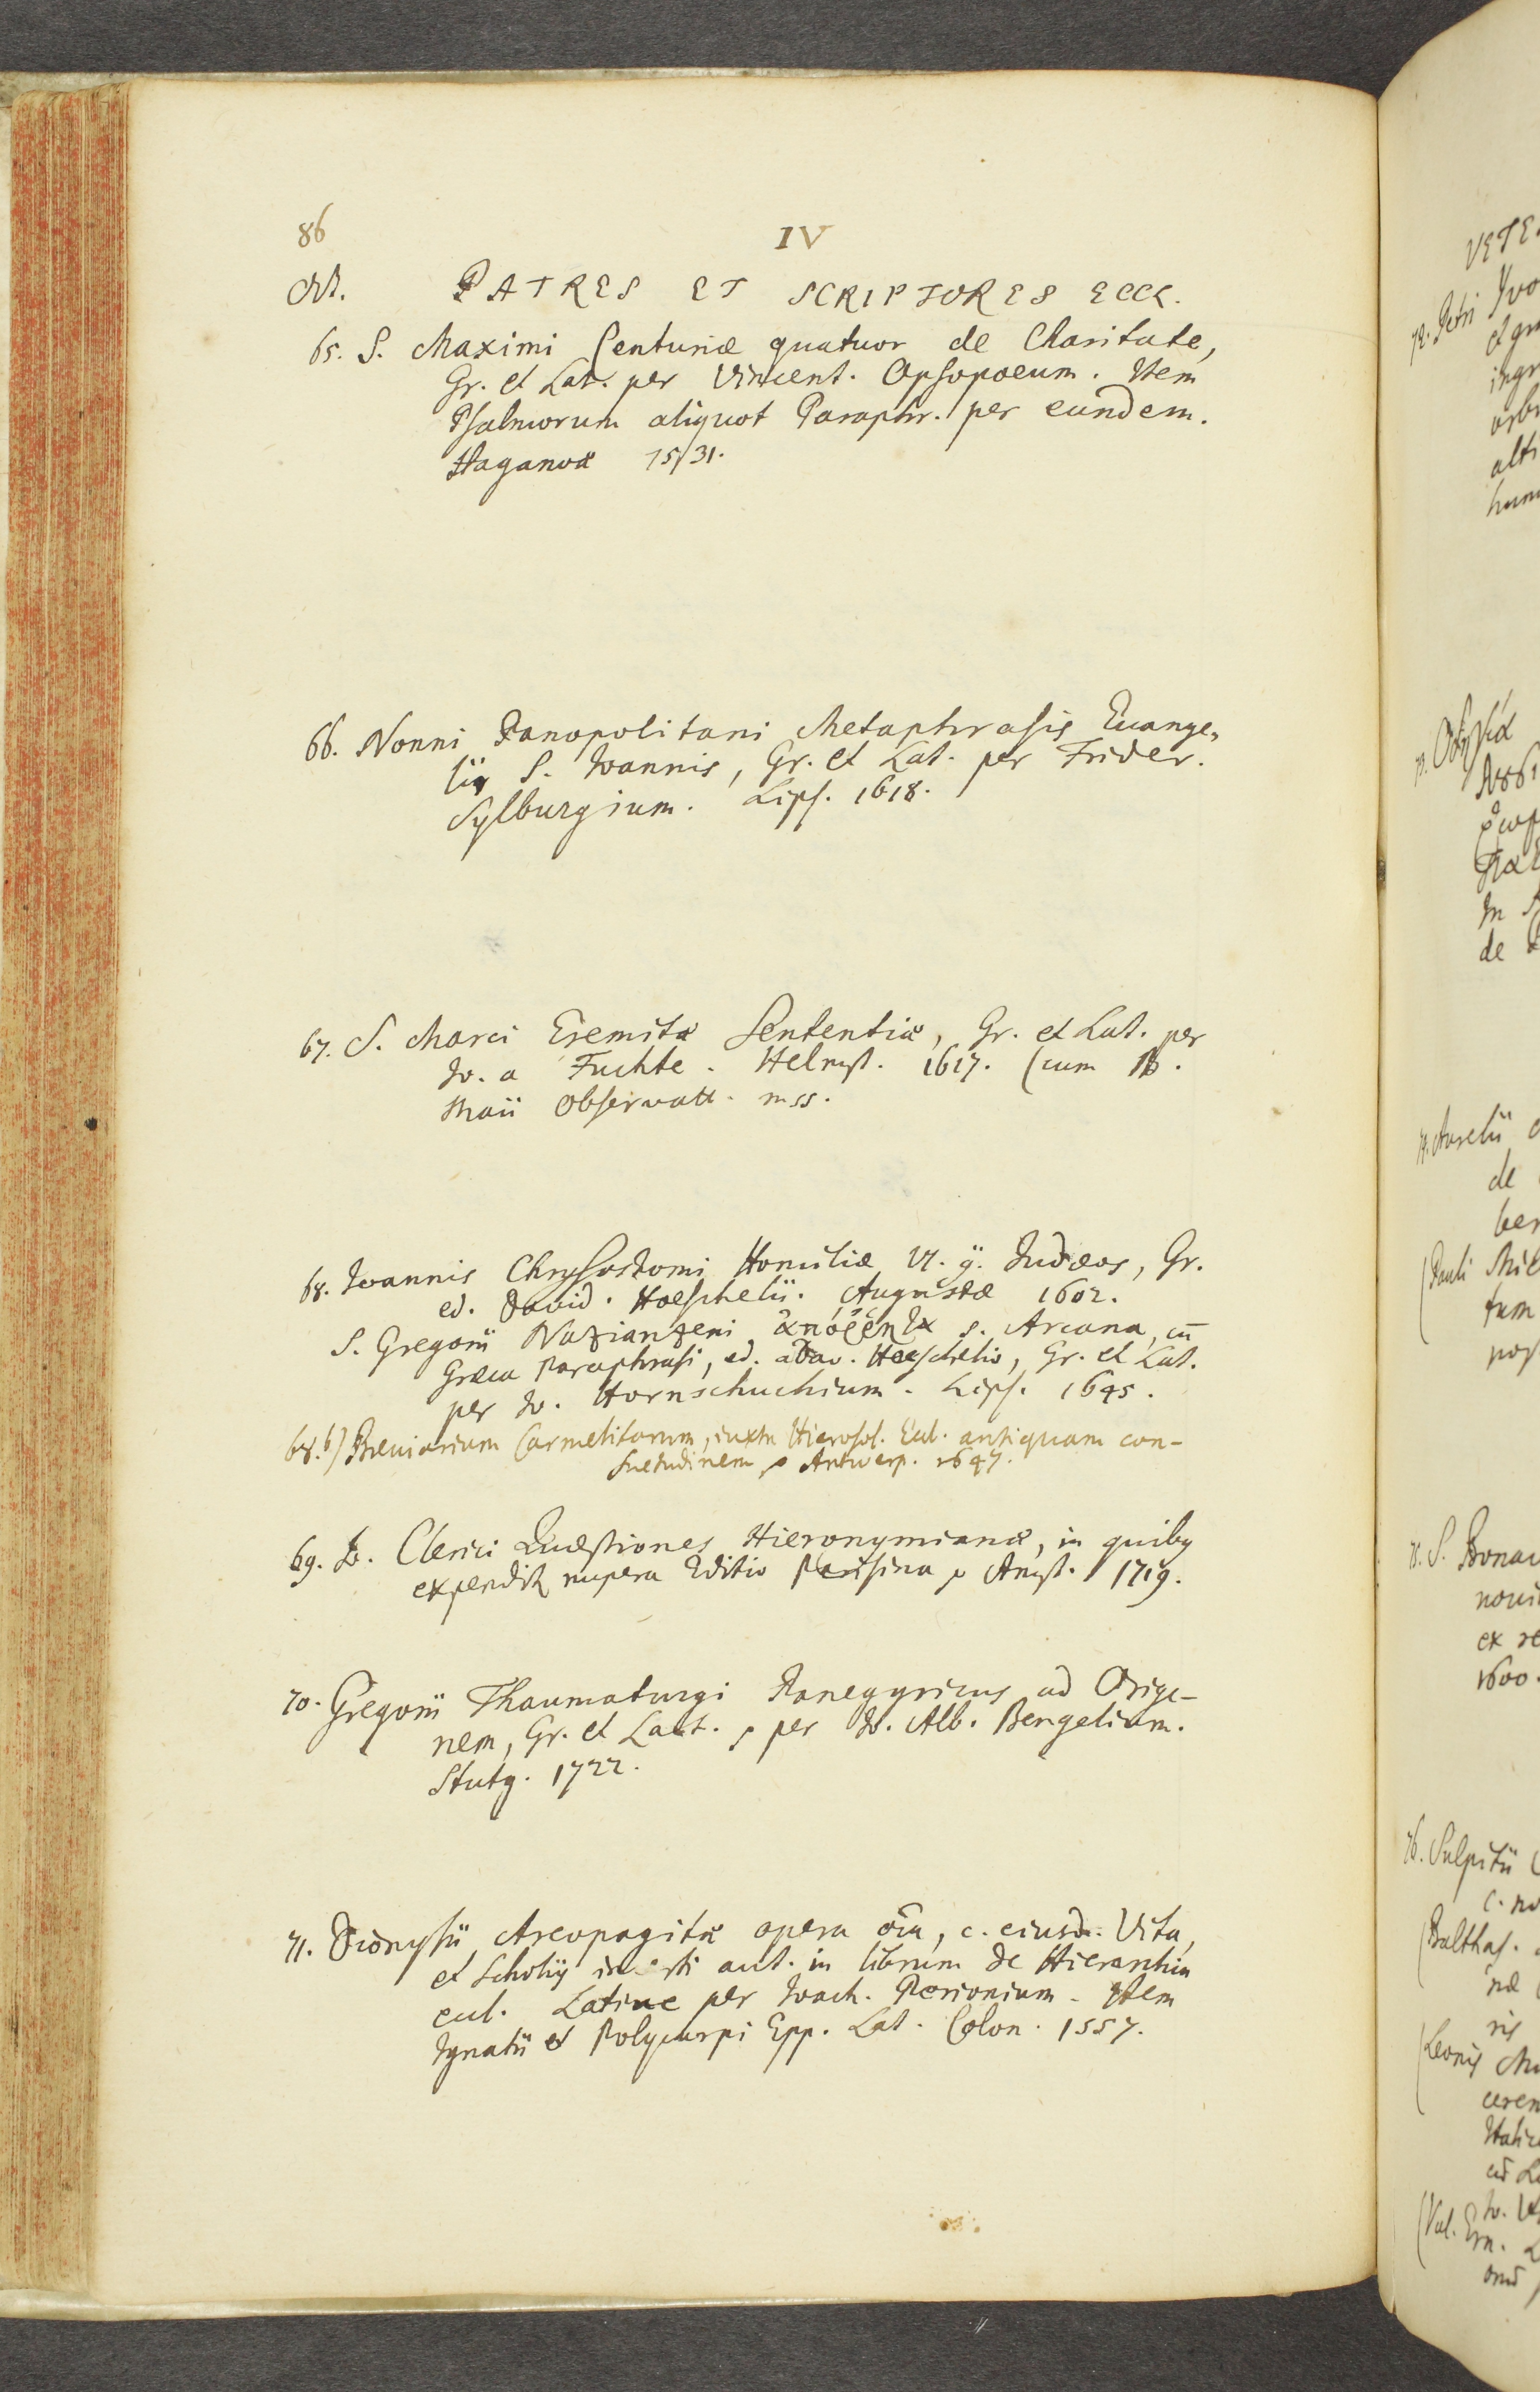 86
IV
PATRES ET SCRIPTORES ECCL.
65. S. Maximi Centuriæ quatuor de Charitate,
Gr. et Lat. per Vincent. Opsopoeum. Item
Psalmorum aliquot Paraphr. per eundem.
Haganoæ 1531.
66. Nonni Panopolitani Metaphrasis Euange-
lii S. Ioannis, Gr. et Lat. per Frider.
Sylburgium. Lips. 1618.
67. S. Marci Eremitæ Sententiæ, Gr. et Lat. per
Io. a Fuchte. Helmst. 1617. (cum
Maii Observatt. mss.
68. Ioannis Chrysostomi Homiliæ VI. Iudæos, Gr.
ed. David. Hoeschelii. Augustæ 1602.
S. Gregorii Nazianzeni ἀπόῤῥητα s. Arcana, cū
Græca Paraphrasi, ed. a Dav. Hoeschelio, Gr. et Lat.
per Io. Hornschuchium. Lips. 1645.
68.b) Breviarium Carmelitarum, iuxta Hierosol. Eccl. antiquam con-
suetudinem, Antwerp. 1647.
69. Io. Clerici Quæstiones Hieronymianæ, in quibus
expendit nupera Editio Parisina Amst. 1719.
70. Gregorii Thaumaturgi Panegyricus ad Orige-
nem, Gr. et Lat. per Io. Alb. Bengelium.
Stutg. 1722.
71. Dionysii Areopagitæ opera oīa, c. eiusd. Vita,
et Scholiis incerti aut. in librum de Hierarchia
eccl. Latine per Ioach. Perionium. Item
Ignatii et Polycarpi Epp. Lat. Colon. 1557.
VETE
72. Petri
et gr
ingr
orb
alt
hum
73.
In
de
74. Aurelii
de
ber
(Pauli
tum
pos
75. S. Bonav
novi
ex re
1600.
76. Sulpitii
c. no
(Balthas.
næ
ris
(Leonis
ceren
Italic
Io.
(Val. Ern.